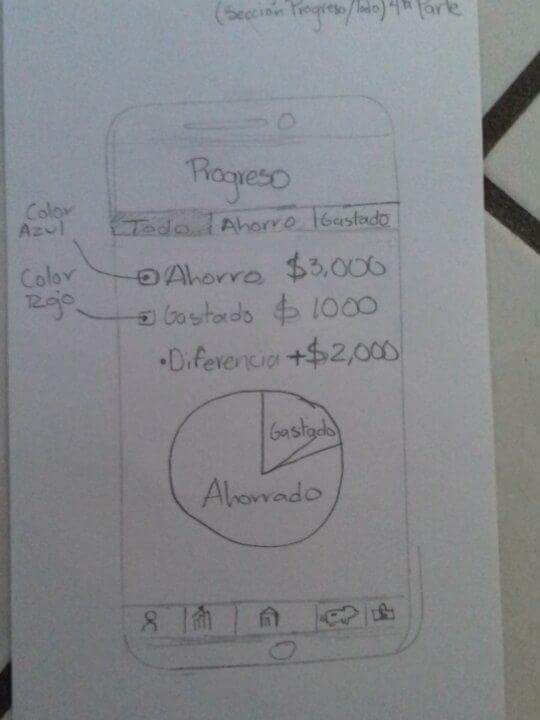 (Sección Progreso/Todo) 4ta Parte
Progreso
Todo Ahorro Gastado
Color
Azul
Ahorro $3,000
Color
Rojo
Gastado $1000
•Diferencia +$2,000
Gastado
Ahorrado